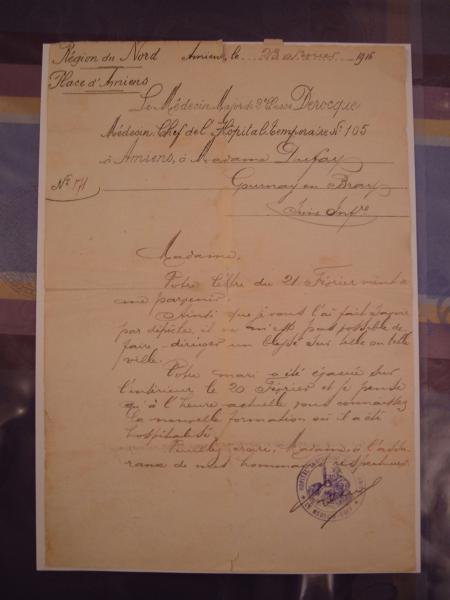 Région du Nord Amiens, le 23 février 1916
Place d'Amiens
Le Médecin Major de 2e Classe Derocque
Médecin Chef de l'Hôpital Temporaire No 105
à Amiens, à Madame Dufay
No 171 Gournay en Bray
Seine Infre
Madame,
Votre lettre du 21 Février vient de
me parvenir.
Ainsi que je vous l'ai fait savoir
par dépêche, il ne m'est pas possible de
faire diriger un blessé sur telle ou telle
ville.
Votre mari a été évacué sur
l'intérieur le 20 Février et je pense
qu'à l'heure actuelle vous connaissez
la nouvelle formation où il a été
hospitalisé.
Veuillez croire, Madame, à l'assu-
rance de mes hommages respectueux.